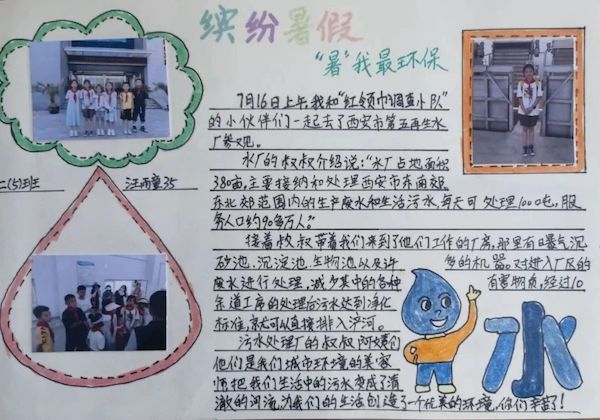 缤纷暑假
“暑”我最环保
7月16日上午我和“红领巾调查小队”
的小伙伴们一起去了西安市第五再生水
厂参观。
水厂的叔叔介绍说:“水厂占地面积
380亩,主要接纳和处理西安市东南郊
东北郊范围内的生产废水和生活污水,每天可处理100吨,服
务人口约90多万人。”
接着叔叔带着我们来到了他们工作的厂房,那里有曝气沉
砂池、沉淀池、生物池以及许多的机器。对进入厂区的
废水进行处理,减少其中的各种有害物质,经过10
余道工序的处理后污水达到净化
标准,就可以直接排入浐河。
污水处理厂的叔叔阿姨们
他们是我们城市环境的美容
师把我们生活中的污水变成了清
澈的河流,为我们的生活创造了一个优美的环境,你们辛苦了!
二(5)班
汪雨童35
水